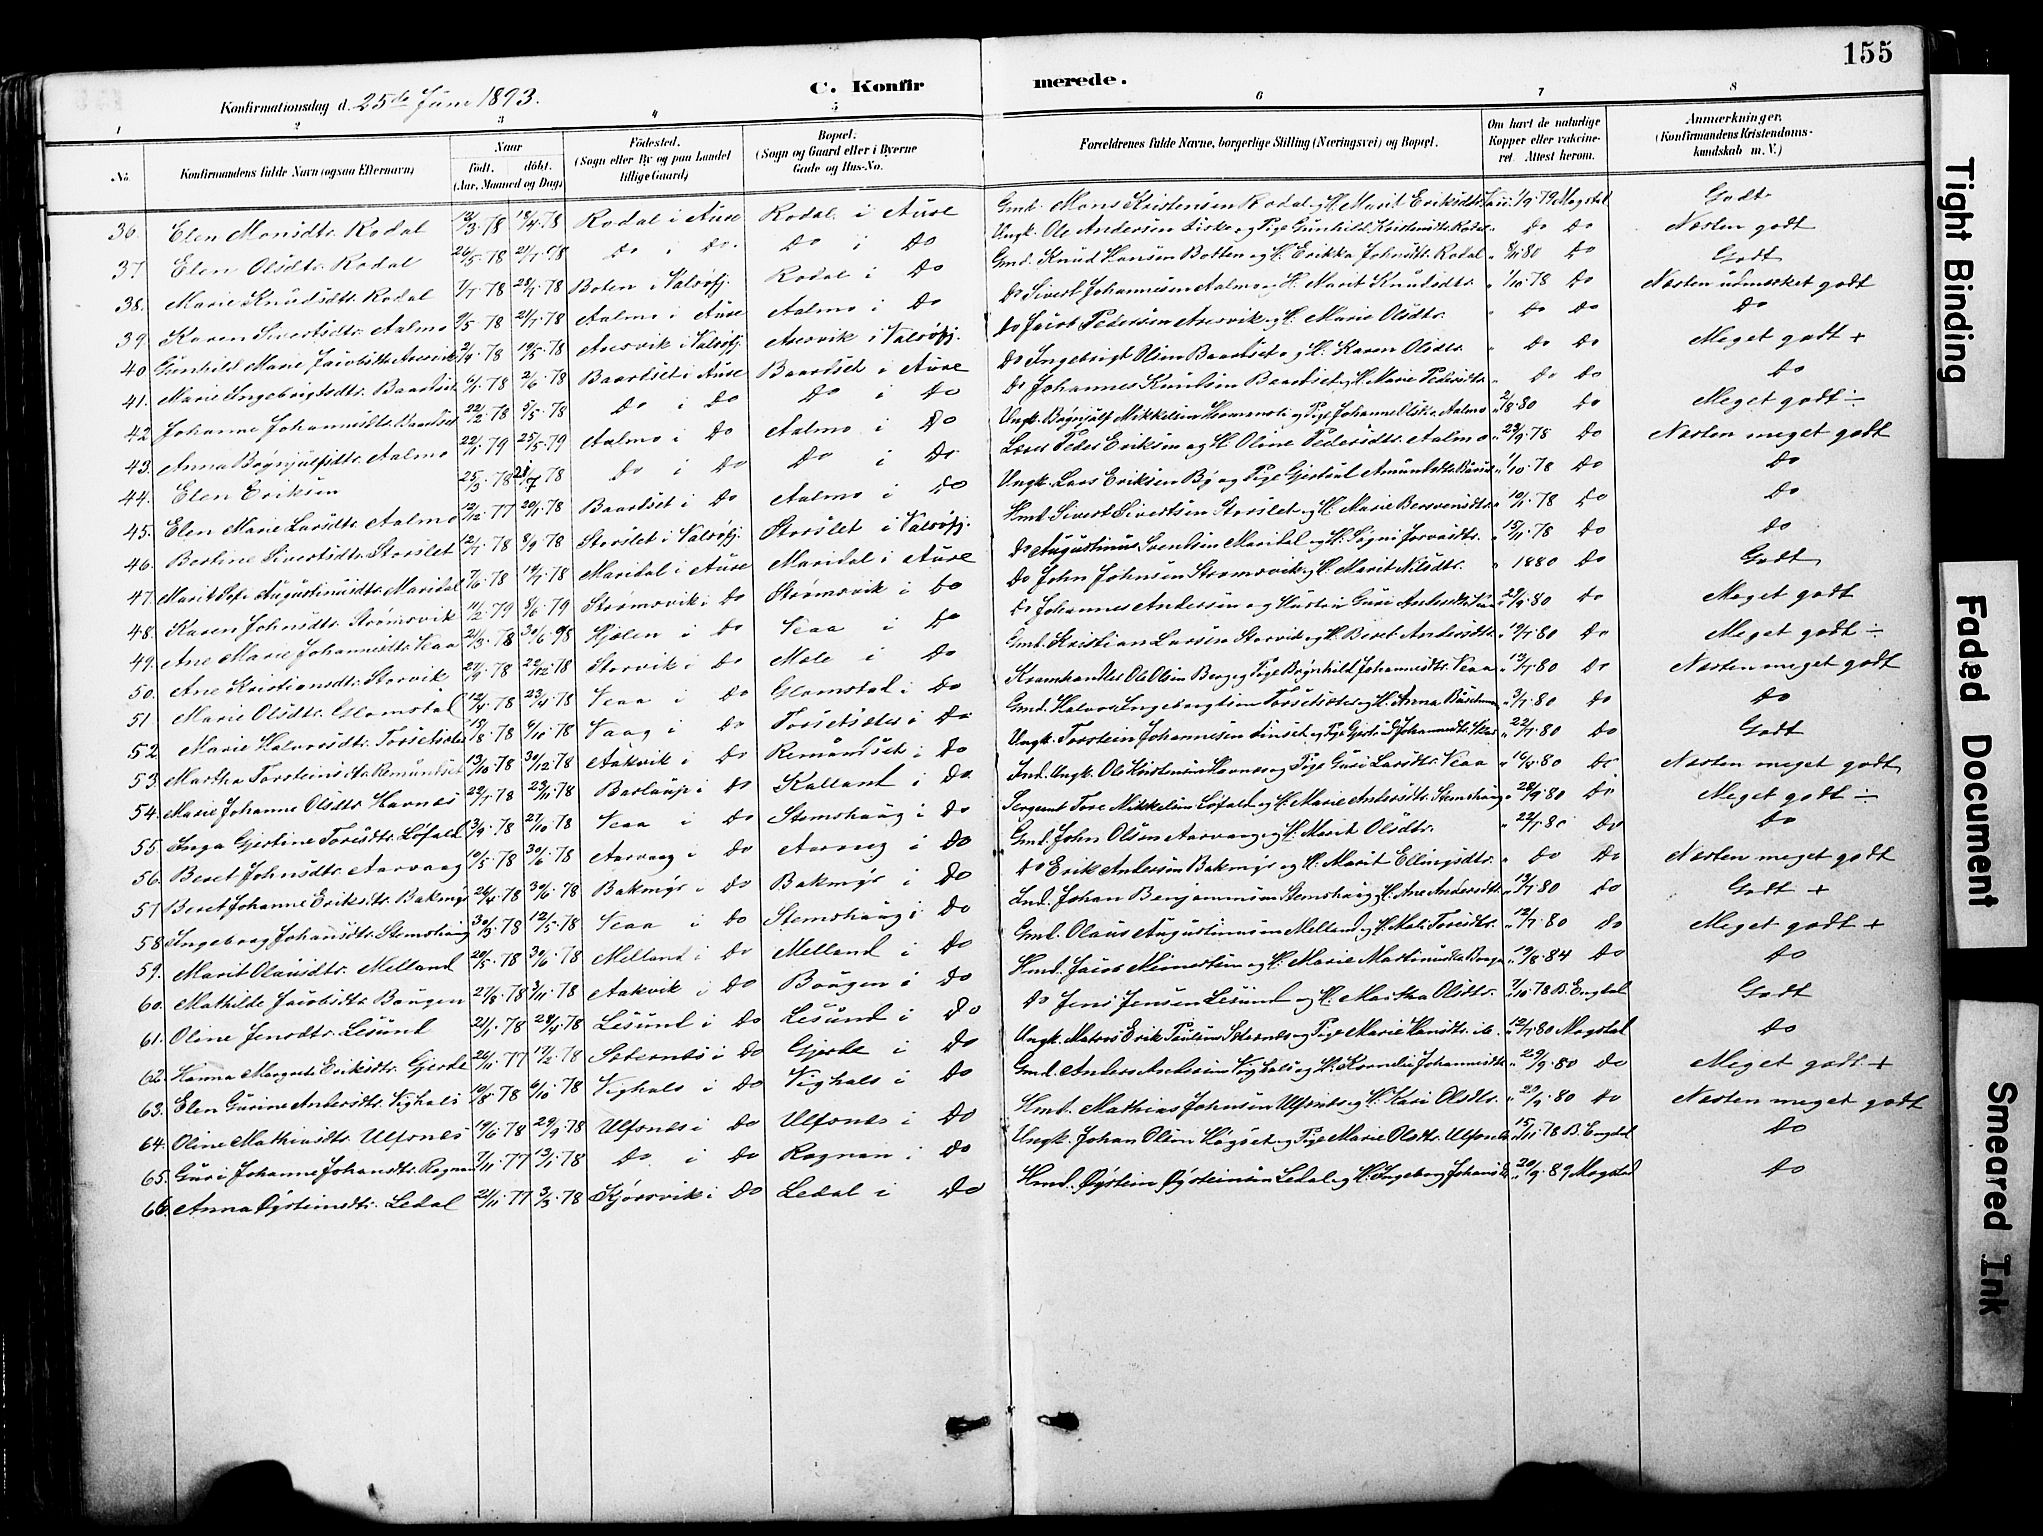 155
C. Konfirmerede.
Konfirmationsdag d. 25de Juni 1893.
1 2 3 4 5 6 7 8
No. Konfirmandens fulde Navn (ogsaa Efternavn) Naar født. døbt. (Aar, Maaned og Dag) Fødested. (Sogn eller By og paa Landet tillige Gaard) Bopæl. (Sogn og Gaard eller i Byerne Gade og Hus-No. Forældrenes fulde Navne, borgerlige Stilling (Næringsvei) og Bopæl. Om havt de naturlige Kopper eller vakcineret. Attest herom. Anmærkninger. (Konfirmandens Kristendomskundskab m. V.)
36. Elen Monsdtr. Rodal 12/3.78 18/4.78 Rodal i Aure Rodal i Aure Gmd. Mons Kristensen Rodal og H. Marit Eriksdtr. 1/9 79 Mogstad Godt
37. Elen Olsdtr. Rodal 26/5.78 21/7.78 Do i Do Do i Do Ungk. Ole Andersen Liske og Pige Gunhild Kristensdtr. Rodal Do Do Næsten godt
38. Marie Knudsdtr. Rodal 1/7.78 28/7.78 Boten i Valsøfj. Rodal i Do Gmd. Knud Hansen Botten og H. Erikka Johnsdtr. Rodal 8/11 80 Do Godt
39. Karen Sivertsdtr. Aalmo 9/5.78 21/7.78 Aalmo i Aure Aalmo i Do Do Sivert Johannesen Aalmo og H. Marit Knudsdtr. 1/10.78 Do Næsten udmærket godt
40 Gunhild Marie Jacobsdtr. Aresvik 2/4.78 19/5.78 Aresvik i Valsøfj. Aresvik i Valsøfj. Do Jacob Pedersen Aresvik og H. Marie Olsdtr. Do Do Do
41. Marie Ingebrigtsdtr. Baardset 6/1.78 2/6.78 Baardset i Aure Baardset i Aure Do Ingebrigt Olsen Baardset og H. Karen Olsdtr. Do Do Meget godt +
42 Johanne Johannesdtr. Baardset 22/2.78 5/5.78 Do i Do Do i Do Do Johannes Knudsen Baardset og H. Marie Pedersdtr. Do Do Do
43. Anna Bøgnjulfsdtr. Aalmo 22/1.79 25/5.79 Aalmo i Do Aalmo i Do Ungk. Bøgnjulf Mikkelsen og Pige Johanne Olsdtr. Aalmo 2/8.80 Do Meget godt ÷
44. Elen Eriksen 25/3.78 21/7.78 Do i Do Do i Do Peder Eriksen og H. Oline Pedersdtr. Aalmo 23/9.78 Do Næsten meget godt
45. Elen Marie Larsdtr. Aalmo 12/12.77 20/1.78 Baardset i Do Aalmo i Do Ungk. Lars Eriksen Bø og Pige Gjertrud Amundsdtr. 1/10.78 Do Do
46. Bertine Sivertsdtr. Storslet 12/7.78 8/9.78 Storslet i Valsøfj. Storslet i Valsøfj. Hmd. Sivert Sivertsen Storslet og H. Marie Bersvensdtr. 10/1.78 Do Do
47. Marit Sofi Augustinusdtr. Maridal 7/6.78 14/7.78 Maridal i Aure Maridal i Aure Do Augustinus Svendsen Maridal og H. 15/11.78 Do Do
48. Karen Johnsdtr. Strømsvik 11/2.79 8/6.79 Strømsvik i Do Strømsvik i Do Do John Johnsen Strømsvik og H. Marit Nilsdtr. 1880 Do Godt
49. Ane Marie Johannesdtr. Veaa 21/3.78 30/6.78 Hjelen i Do Veaa i Do Do Johannes Andersen og Hustru Guri Andersdtr. 29/9.80 Do Meget godt
50. Ane Kristiansdtr. Storvik 27/9.78 22/12.78 Storvik i Do Mole i Do Gmd. Kristian Larsen Storvik og H. Beret Andersdtr. 19/7.80 Do Meget godt ÷
51 Marie Olsdtr. Glamstad 12/4.78 23/4.78 Veaa i Do Glamstad i Do Kramhandler Ole Olsen Berg og Pige Bøgnhild Johannesdtr. Veaa 12/7.80 Do Næsten meget godt
52 Marie Halvorsdtr. Torsetsæter 15/8.78 6/10.78 Vaag i Do Torsetsæter i Do Gmd. Halvor Ingebrigtsen Torsetsæter og H. Anna 3/7.80 Do Do
53. Martha Torsteinsdtr. Remundset 13/10.78 30/12.78 Aakvik i Do Remundset i Do Ungk. Torstein Johannesen Linset og Pige Gjertrud Johannesdtr. 22/7.80 Do Godt
54. Marie Johanne Olsdtr. Havnes 22/7.78 23/11.78 Barlaup i Do Kalland i Do Ind. Ungk. Ole Kristensen Havnes og Pige Guri Larsdtr. Veaa 16/8.80 Do Næsten meget godt
55. Inga Gjertine Toresdtr. Løfald 3/9.78 27/10.78 Veaa i Do Stemshaug i Do Sergeant Tore Mikkelsen Løfald og H. Marie Andersdtr. Stemshaug 28/9.80 Do Meget godt ÷
56. Beret Johnsdtr. Aarvaag 10/5.78 30/6.78 Aarvaag i Do Aarvaag i Do Gmd. John Olsen Aarvaag og H. Marit Olsdtr. 22/7.80 Do Do
57 Beret Johanne Eriksdtr. Bakmyr 26/4.78 30/6.78 Bakmyr i Do Bakmyr i Do Do Erik Andersen Bakmyr og H. Marit Ellingsdtr. Do Do Næsten meget godt
58 Ingeborg Johansdtr. Stemshaug 30/3.78 12/5.78 Veaa i Do Stemshaug i Do Ind. Johan Benjaminsen Stemshaug og H. Ane Andersdtr. 13/7.80 Do Godt +
59. Marit Olausdtr. Melland 20/5.78 30/6.78 Melland i Do Melland i Do Gmd. Olaus Augustinusen Melland og H. Mali Toresdtr. 12/7.80 Do Meget godt +
60. Mathilde Jacobsdtr. Baugen 21/8.78 3/11.78 Aakvik i Do Baugen i Do Hmd. Jacob og H. Marie Martinusdtr. Baugen 19/8.84 Do Do
61. Oline Jensdtr. Lesund 21/1.78 28/4.78 Lesund i Do Lesund i Do Do Jens Jensen Lesund og H. Martha Olsdtr. 7/10.78 B. Engdal Godt
62 Hanna Margrete Eriksdtr. Gjerde 26/11.77 17/2.78 Sæternes i Do Gjerde i Do Ungk. Matros Erik Paulsen Sæternes og Pige Marie Hansdtr. ib. 12/7.80 Mogstad Do
63. Elen Gurine Andersdtr. Vighals 10/8.78 6/10.78 Vighals i Do Vighals i Do Gmd. Anders Andersen Vighals og H. Johannesdtr. 29/9.80 Do Meget godt +
64. Oline Mathiasdtr. Ulfsnes 19/6.78 29/9.78 Ulfsnes i Do Ulfsnes i Do Hmd. Mathias Johnsen Ulfsnes og H. Kari Olsdtr. 29/9.80 Do Næsten meget godt
65. Guri Johanne Johansdtr. Rognan 7/11.77 13/1.78 Do i Do Rognan i Do Ungk. Johan Olsen Høgset og Pige Marie Olsdtr. Ulfsnes 15/11.78 B. Engdal Do
66. Anna Øysteinsdtr. Ledal 21/11.77 3/3.78 Kjørsvik i Do Ledal i Do Hmd. Øystein Øysteinsen Ledal og H. Ingeborg Johansdtr. 20/9.89 Mogstad Do
Tight Binding
Faded Document
Smeared Ink